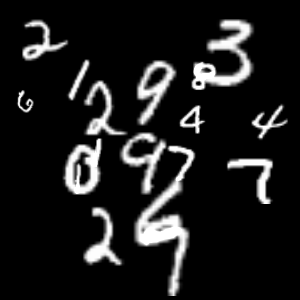 2 3
1 9 8
6 2 4 4
0 1 9 7 7
2 6 9